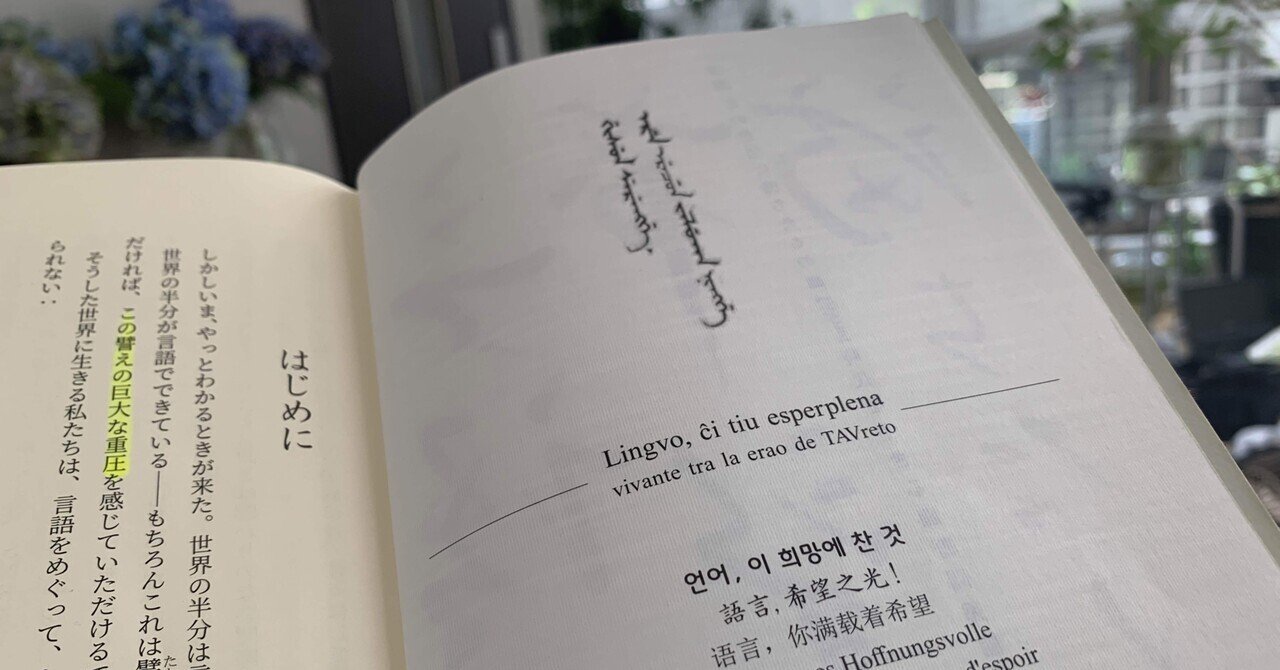 Lingvo, ĉi tiu esperplena
vivante tra la erao de TAVreto
언어, 이 희망에 찬 것
語言, 希望之光！
语言，你满载着希望
Hoffnungsvolle
d'espoir
はじめに
しかしいま、やっとわかるときが来た。世界の半分は
世界の半分が言語でできている――もちろんこれは譬
だければ、この譬えの巨大な重圧を感じていただけるで
そうした世界に生きる私たちは、言語をめぐって、
られない：